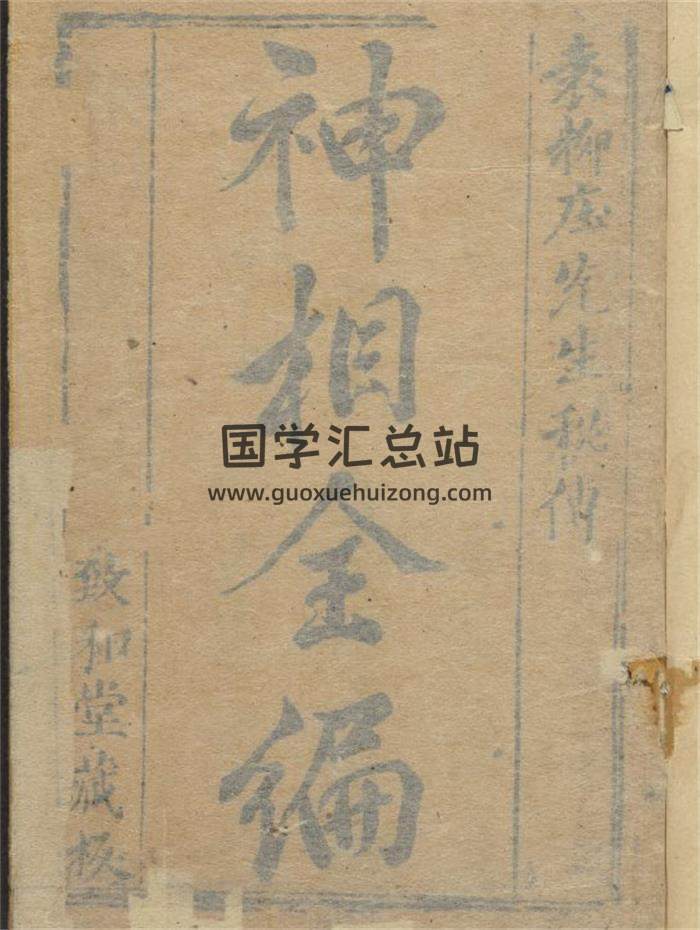 袁柳庄先生秘傳
神相全编
致和堂藏板
国学汇总站
www.guoxuehuizong.com